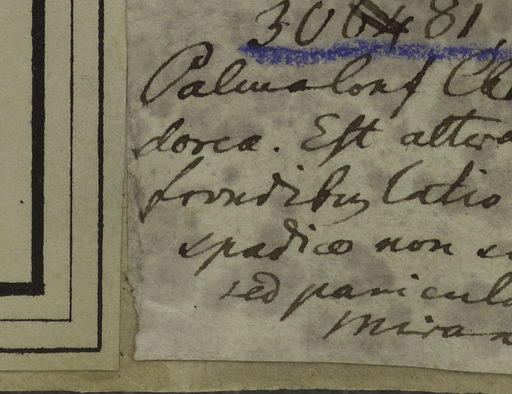 306481
Palma
dorea. Est altera
frondibus latio
spadice non
sed panicula
Miran